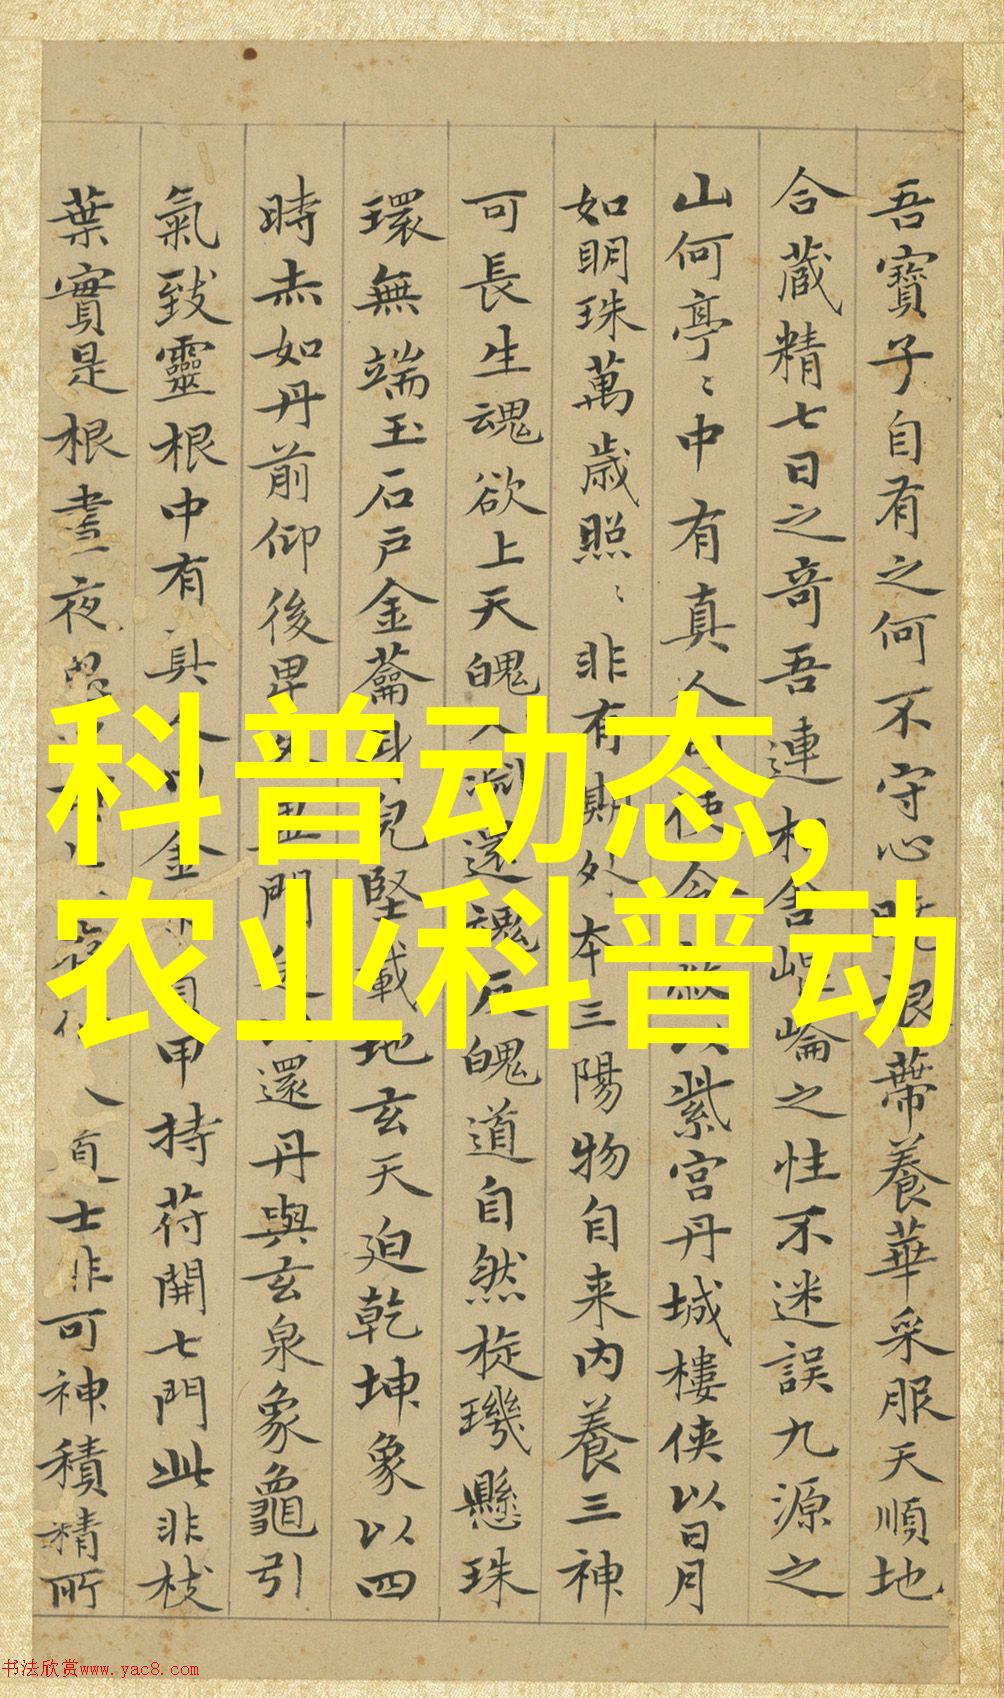 吾寶子自有之何不守心 蒂養華采服天順地
合蔵精七日之奇吾連 之性不迷誤九源之
山何亭〻中有真人 紫宮丹城樓俠以日月
如明珠萬歳照〻非有期处本三陽物自来内養三神
可長生魂欲上天魄入 還魂反魄道自然旋璣懸珠
環無端玉石戶金蘥 堅載地玄天迫乾坤象以四
時赤如丹前仰後卑 門 還丹與玄泉象龜引
氣致靈根中有真人 金 甲持苻開七門此非枝
葉實是根晝夜 士非可神積精所
科普动态,
农业科普动
书法欣赏www.yac8.com